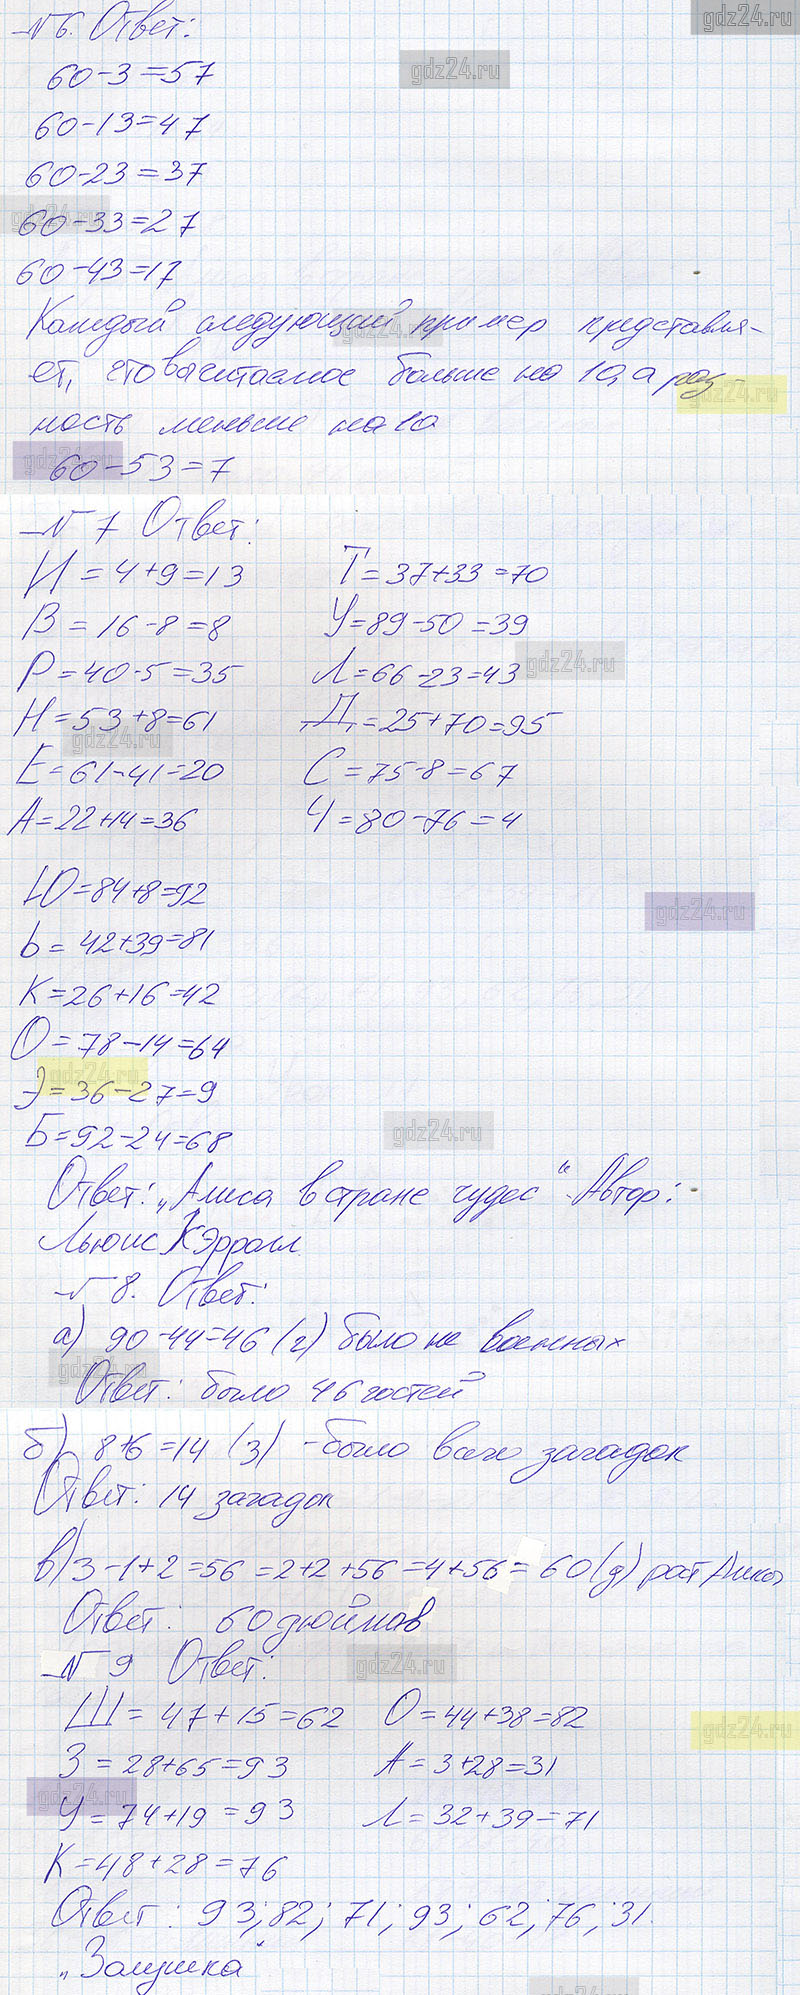 №6. Ответ:
gdz24.ru
60-3=57
gdz24.ru
60-13=47
60-23=37
gdz24.ru
60-33=27
60-43=17
Каждый следующий пример представля-
gdz24.ru
ет, что вычитаемое больше на 10, а раз-
gdz24.ru
ность меньше на 10
gdz24.ru
60-53=7
№7 Ответ:
И=4+9=13 Т=37+33=70
В=16-8=8 У=89-50=39
Р=40-5=35 Л=66-23=43
gdz24.ru
Н=53+8=61 Д=25+70=95
gdz24.ru
Е=61-41=20 С=75-8=67
А=22+14=36 Ч=80-76=4
Ю=84+8=92
gdz24.ru
Ь=42+39=81
К=26+16=42
О=78-14=64
gdz24.ru
Э=36-27=9
Б=92-24=68
gdz24.ru
Ответ: „Алиса в стране чудес“. Автор:
Льюис Кэрролл
№8. Ответ:
а) 90-44=46 (г) было не военных
gdz24.ru
Ответ: было 46 гостей
б) 8+6=14 (з) - было всего загадок
Ответ: 14 загадок
в) 3-1+2=56=2+2+56=4+56=60 (д) рост Алисы
Ответ: 60 дюймов
№9 Ответ:
gdz24.ru
Ш=47+15=62 О=44+38=82
gdz24.ru
З=28+65=93 А=3+28=31
gdz24.ru
У=74+19=93 Л=32+39=71
К=48+28=76
Ответ: 93; 82; 71; 93; 62; 76; 31.
„Залушка“
gdz24.ru